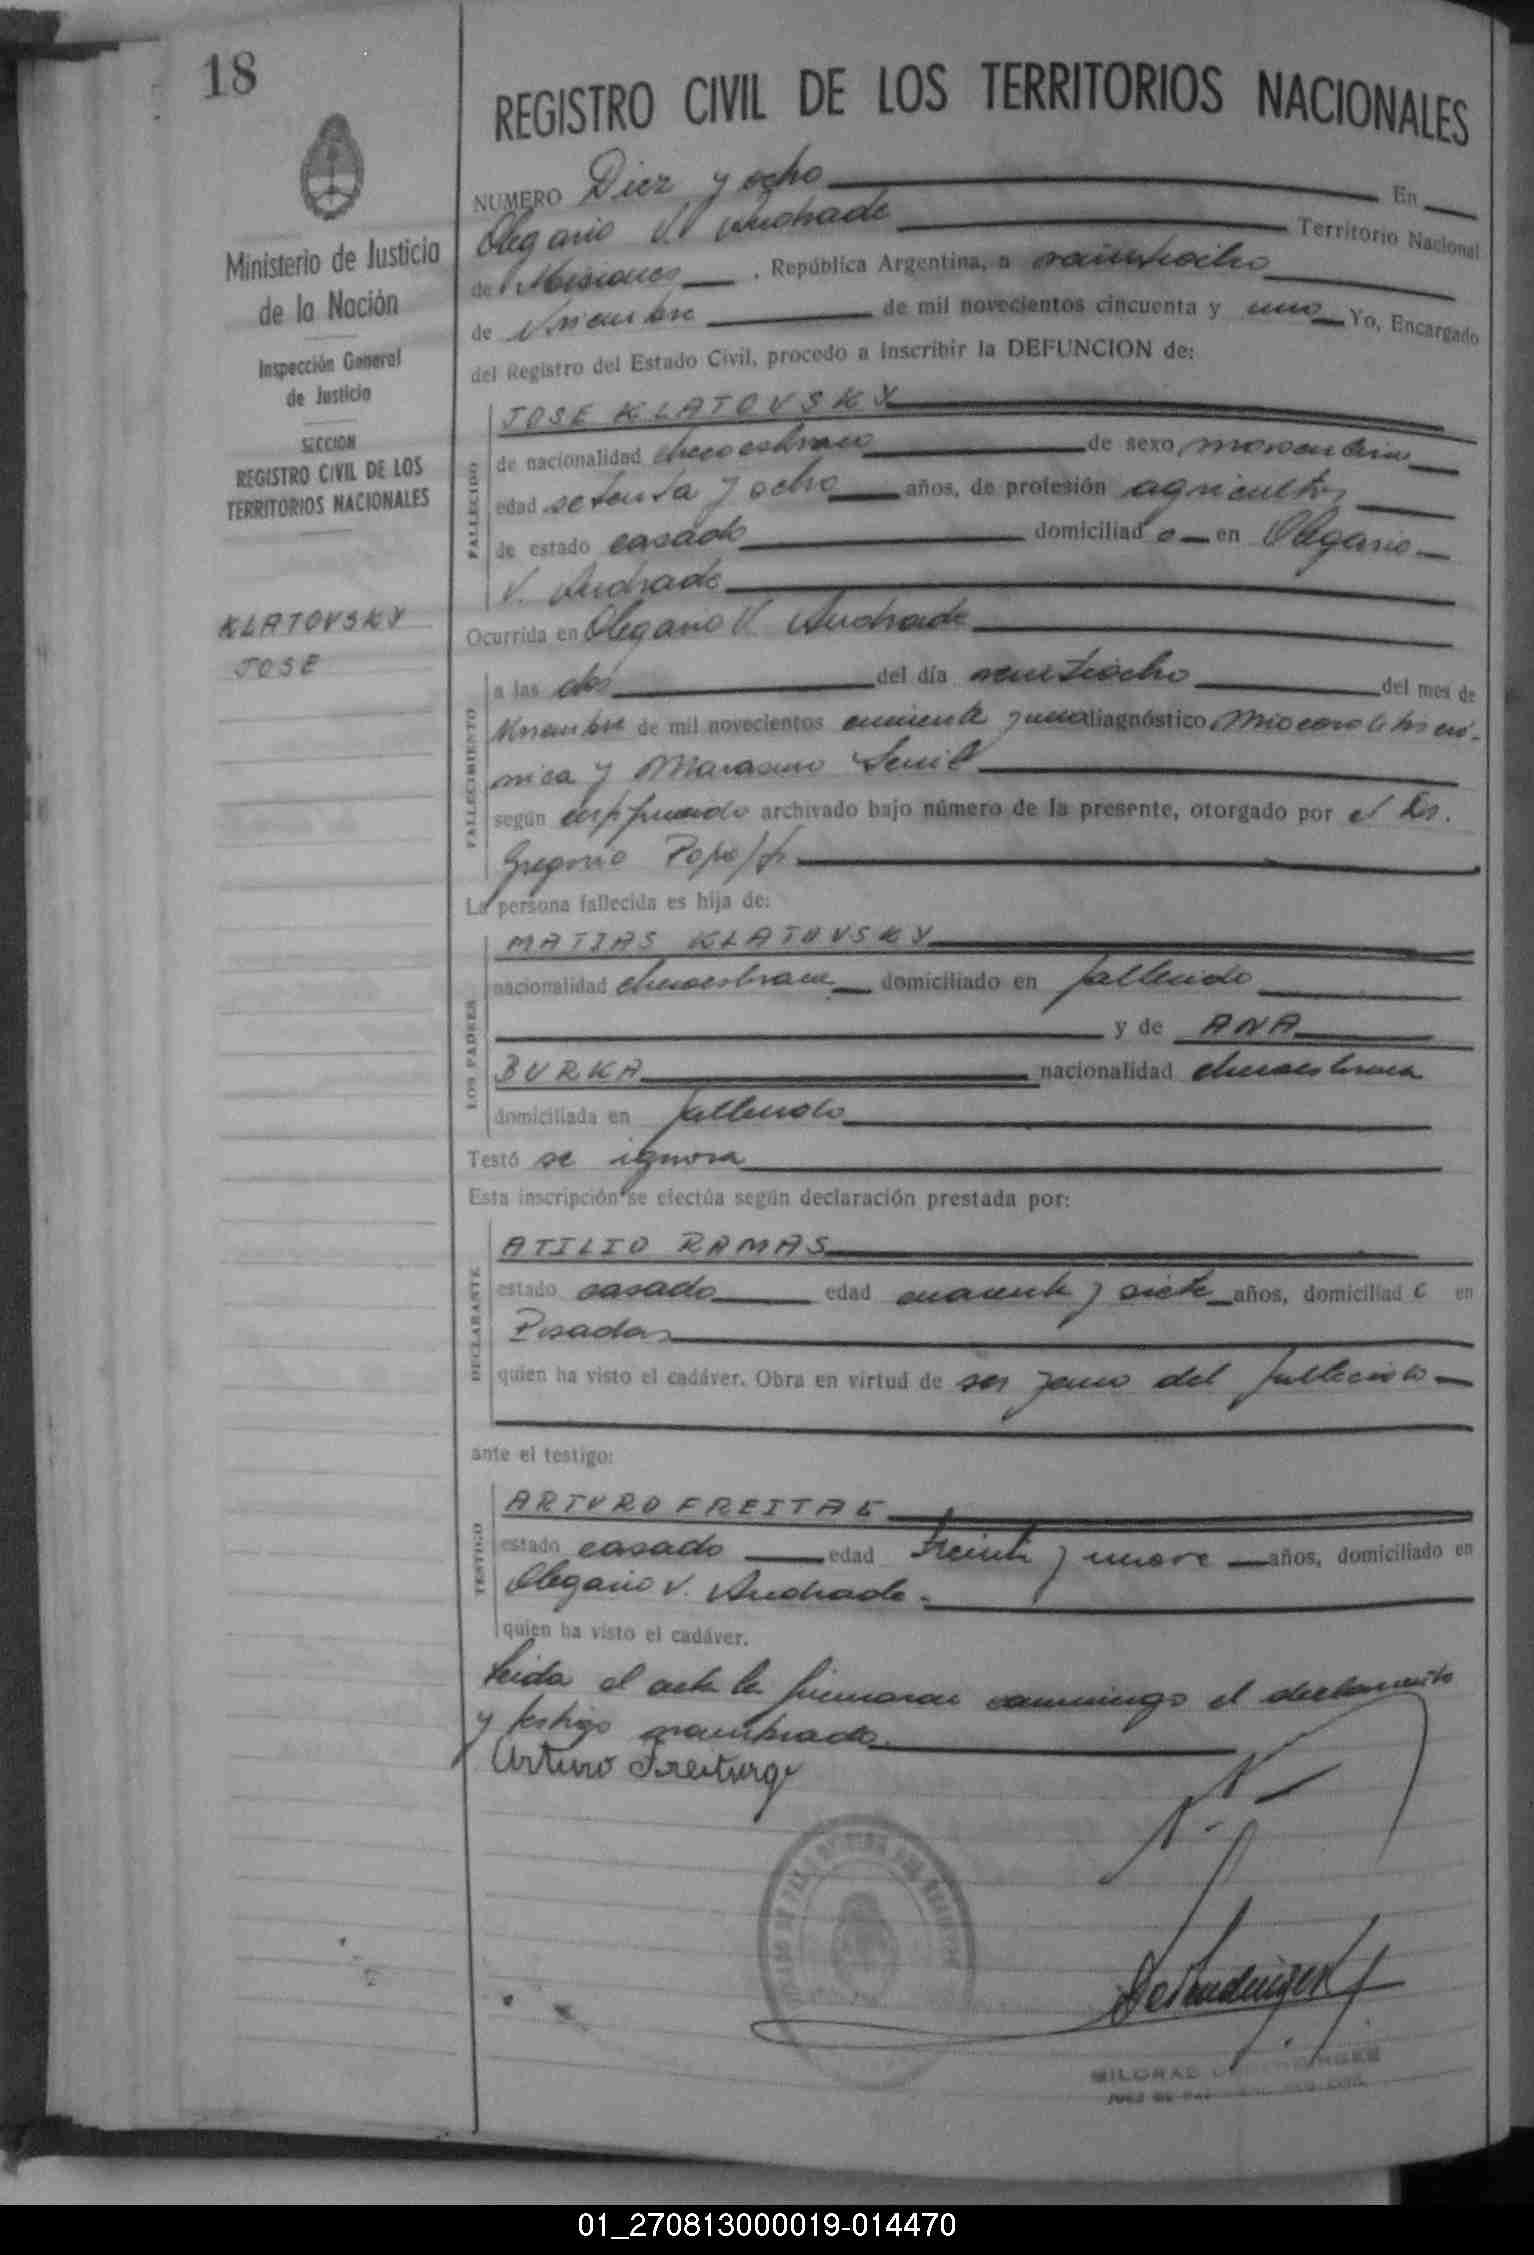 18
Ministerio de Justicia
de la Nación
Inspección General
de Justicia
SECCION
REGISTRO CIVIL DE LOS
TERRITORIOS NACIONALES
KLATOVSKY
JOSE
REGISTRO CIVIL DE LOS TERRITORIOS NACIONALES
NUMERO Diez y ocho En
Olegario V. Andrade Territorio Nacional
de Misiones , República Argentina, a veintiocho
de Noviembre de mil novecientos cincuenta y uno Yo, Encargado
del Registro del Estado Civil, procedo a inscribir la DEFUNCION de:
FALLECIDO
JOSE KLATOVSKY
de nacionalidad checoeslovaco de sexo masculino
edad setenta y ocho años, de profesión agricultor
de estado casado domiciliado en Olegario
V. Andrade
Ocurrida en Olegario V. Andrade
FALLECIMIENTO
a las dos del día veintiocho del mes de
Noviembre de mil novecientos cincuenta y uno diagnóstico Miocarditis cró-
nica y Marasmo Senil
según archivado bajo número de la presente, otorgado por el Dr.
Gregorio
La persona fallecida es hija de:
LOS PADRES
MATIAS KLATOVSKY
nacionalidad checoeslovaca domiciliado en fallecido
y de ANA
BURKA nacionalidad checoeslovaca
domiciliada en fallecida
Testó se ignora
Esta inscripción se efectúa según declaración prestada por:
DECLARANTE
ATILIO RAMAS
estado casado edad cuarenta y siete años, domiciliado en
Posadas
quien ha visto el cadáver. Obra en virtud de ser yerno del fallecido
ante el testigo:
TESTIGO
ARTURO FREITAG
estado casado edad treinta y nueve años, domiciliado en
Olegario V. Andrade
quien ha visto el cadáver.
Leida el acta la firmaron conmigo el declarante
y testigo nombrado.
Arturo Freitag
01_270813000019-014470